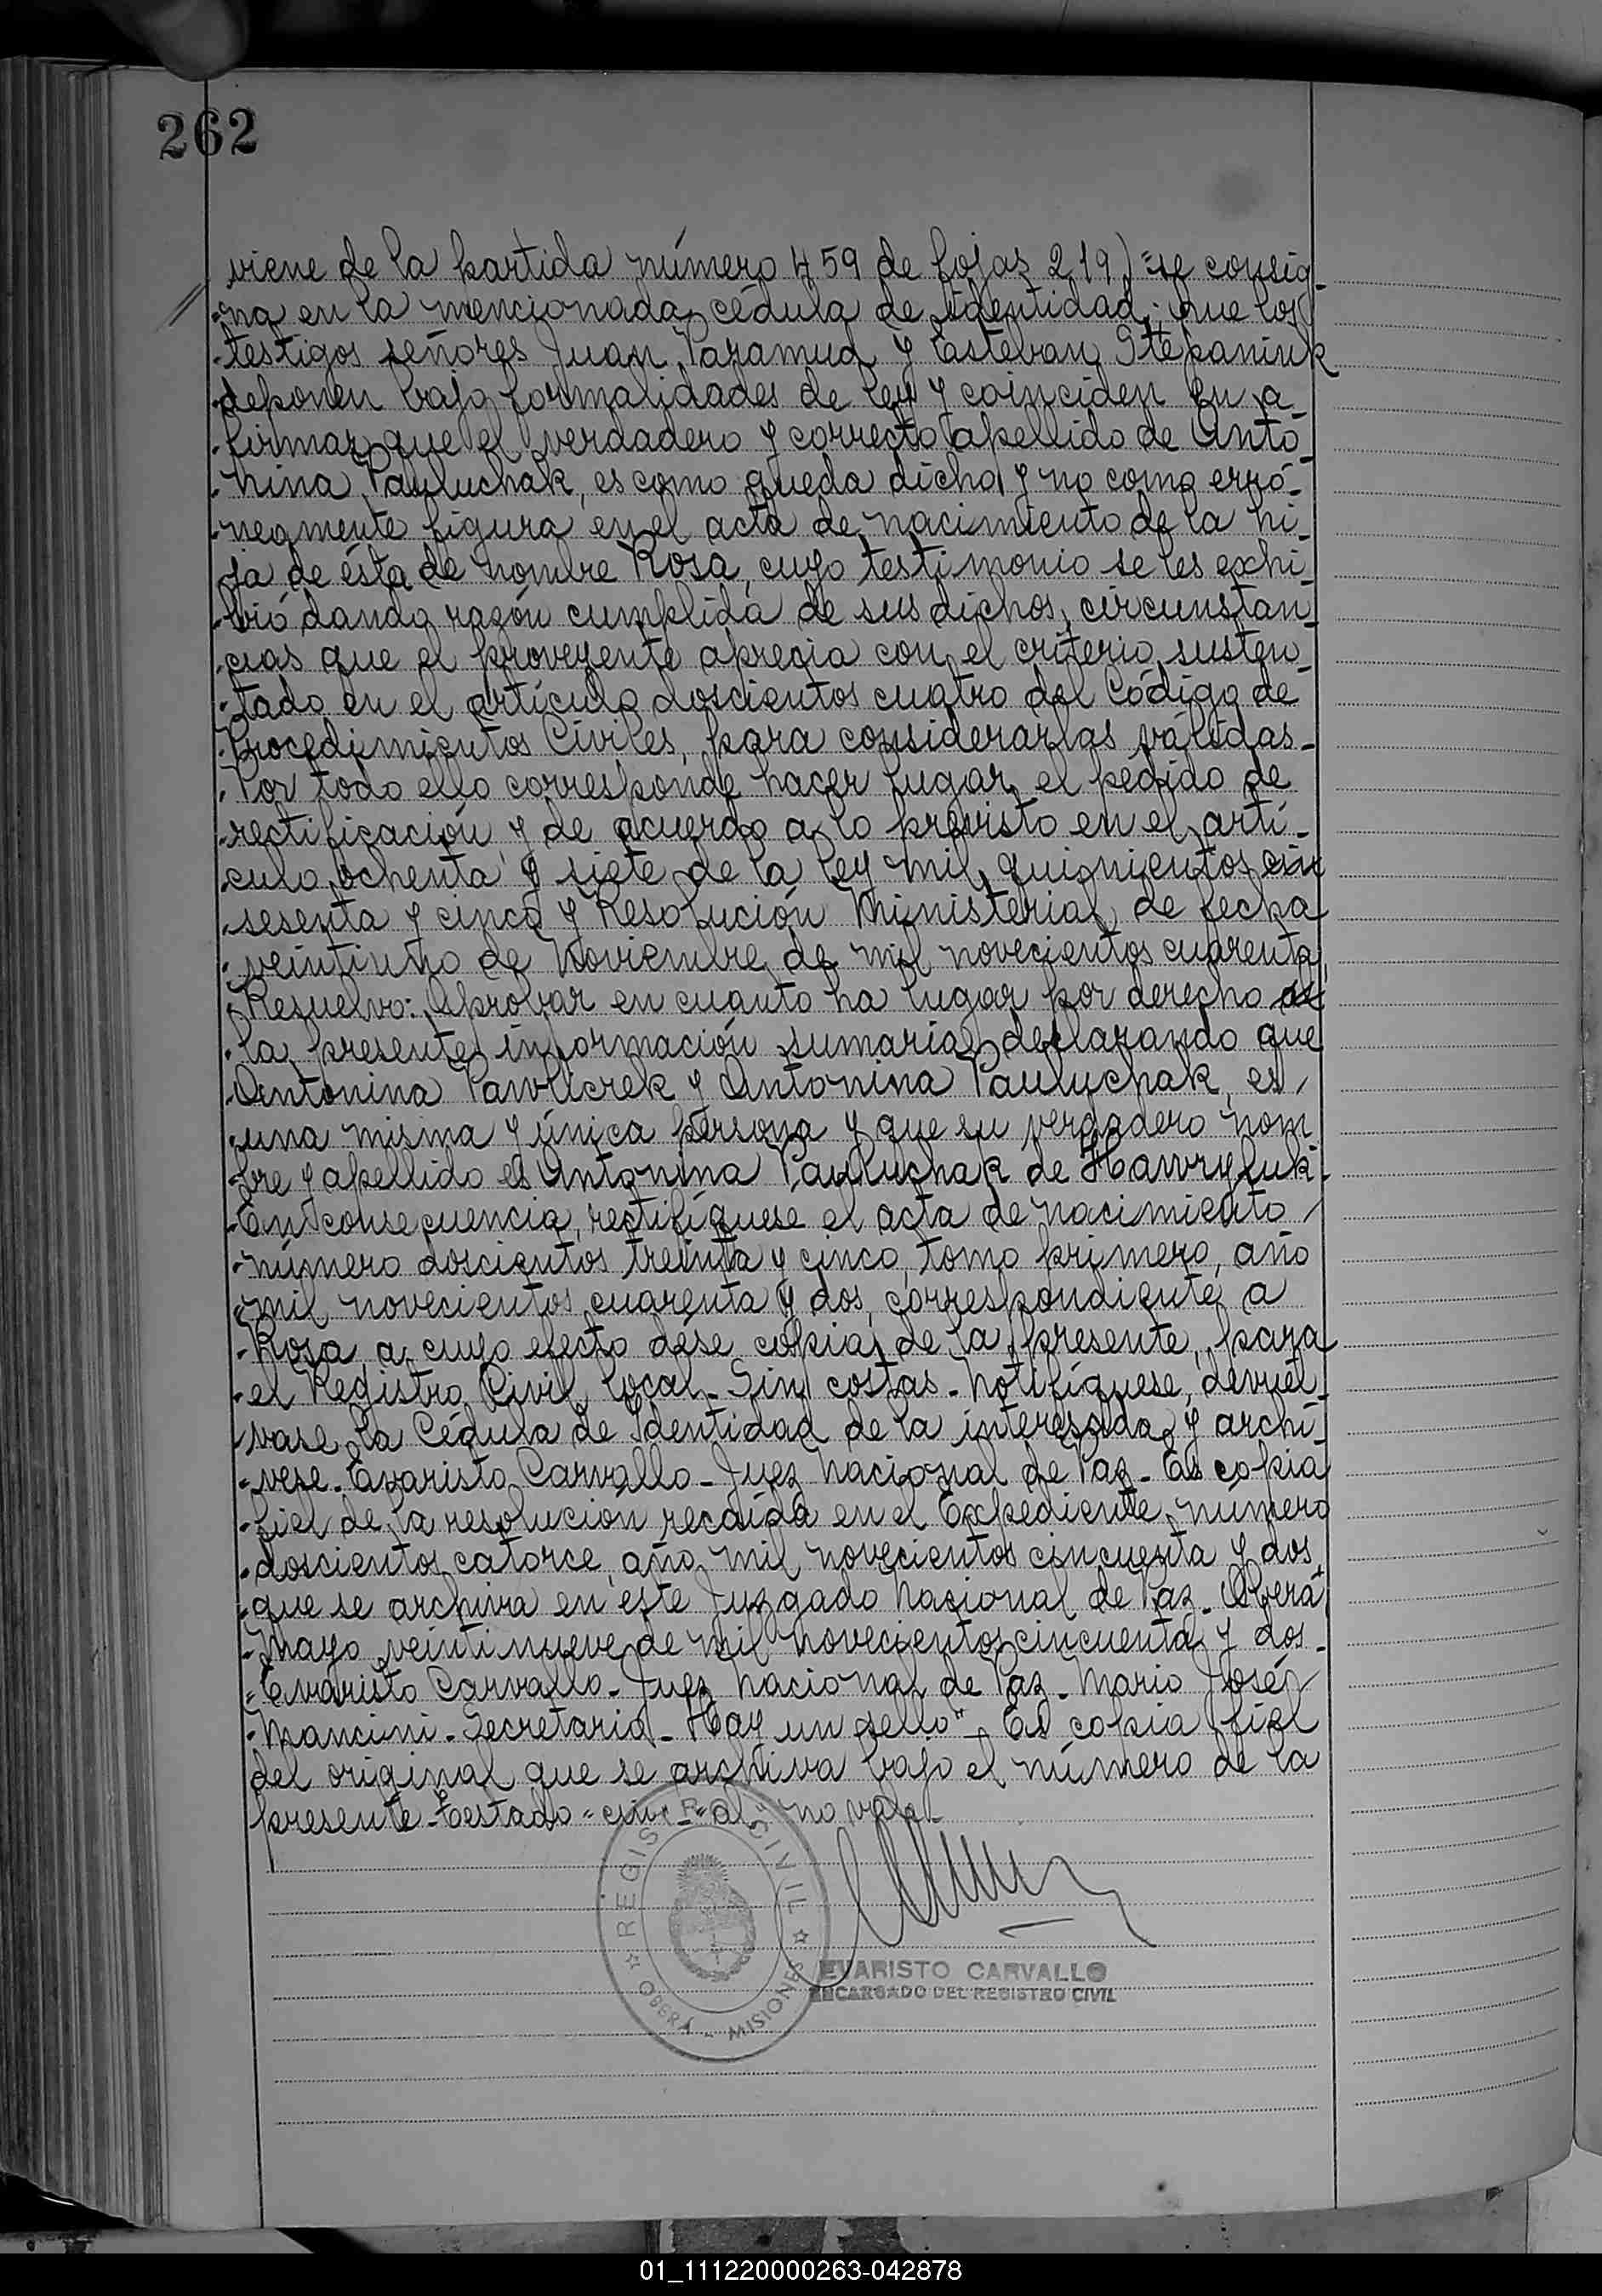 262
viene de la partida número 459 de fojas 219) "se consig-
"na en la mencionada cédula de identidad; que los
"testigos señores Juan Paramud y Esteban Stepaniuk
"deponen bajo formalidades de ley y coinciden en a-
"firmar que el verdadero y correcto apellido de Anto-
"nina Pauluchak, es como queda dicho y no como erró-
"neamente figura en el acta de nacimiento de la hi-
"ja de ésta de nombre Rosa, cuyo testimonio se les exhi-
"bió dando razón cumplida de sus dichos, circunstan-
"cias que el proveyente aprecia con el criterio susten-
"tado en el artículo doscientos cuatro del Código de
"Procedimientos Civiles, para considerarlas válidas.-
"Por todo ello corresponde hacer lugar el pedido de
"rectificación y de acuerdo a lo previsto en el artí-
"culo ochenta y siete de la ley mil quinientos cin
"sesenta y cinco y Resolución Ministerial de fecha
"veintiuno de Noviembre de mil novecientos cuarenta,
"Resuelvo: Aprobar en cuanto ha lugar por derecho al
"la presente información sumaria, declarando que
"Antonina Pawlicrek y Antonina Pauluchak, es
"una misma y única persona y que su verdadero nom
"bre y apellido es Antonina Pauluchak de Hawryluk.-
"En consecuencia, rectifíquese el acta de nacimiento
"número doscientos treinta y cinco, tomo primero, año
"mil novecientos cuarenta y dos, correspondiente a
"Rosa, a cuyo efecto dése copia de la presente, para
"el Registro Civil local.- Sin costas.- Notifíquese, devuél-
"vase la Cédula de Identidad de la interesada y archí-
"vese.- Evaristo Carvallo - Juez Nacional de Paz.- Es copia
"fiel de la resolución recaída en el Expediente número
"doscientos catorce, año mil novecientos cincuenta y dos,
"que se archiva en este Juzgado Nacional de Paz.- Oberá,
"Mayo veintinueve de mil novecientos cincuenta y dos.-
"Evaristo Carvallo - Juez Nacional de Paz.- Mario José
"Mancini - Secretario - Hay un sello".- Es copia fiel
del original que se archiva bajo el número de la
presente.- Testado "cin" - "al" no vale.-
REGISTRO CIVIL
OBERÁ - MISIONES
EVARISTO CARVALLO
ENCARGADO DEL REGISTRO CIVIL
01_111220000263-042878